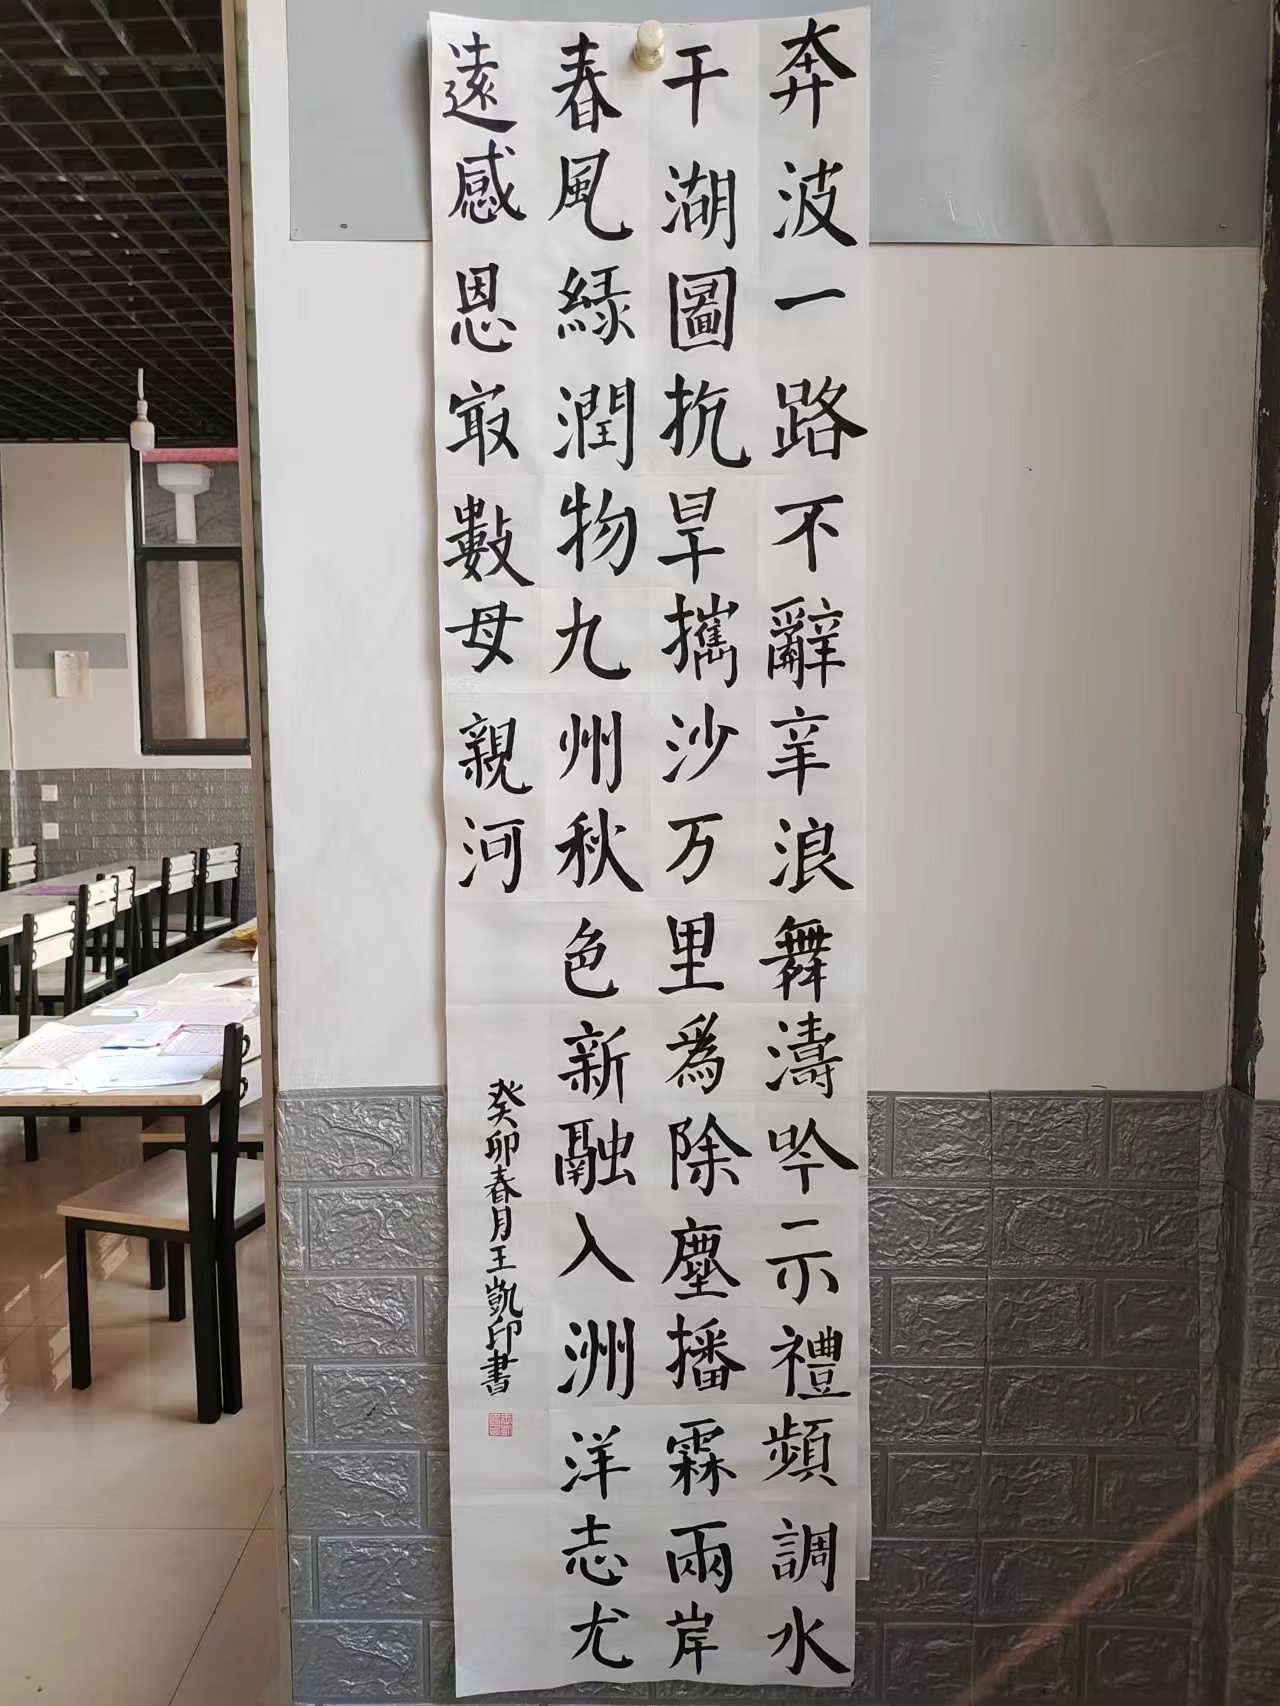 奔波一路不辭辛浪舞濤吟示禮頻調水
干湖圖抗旱攜沙万里為除塵播霖兩岸
春風綠潤物九州秋色新融入洲洋志尤
遠感恩㝡數母親河
癸卯春月王凱印書